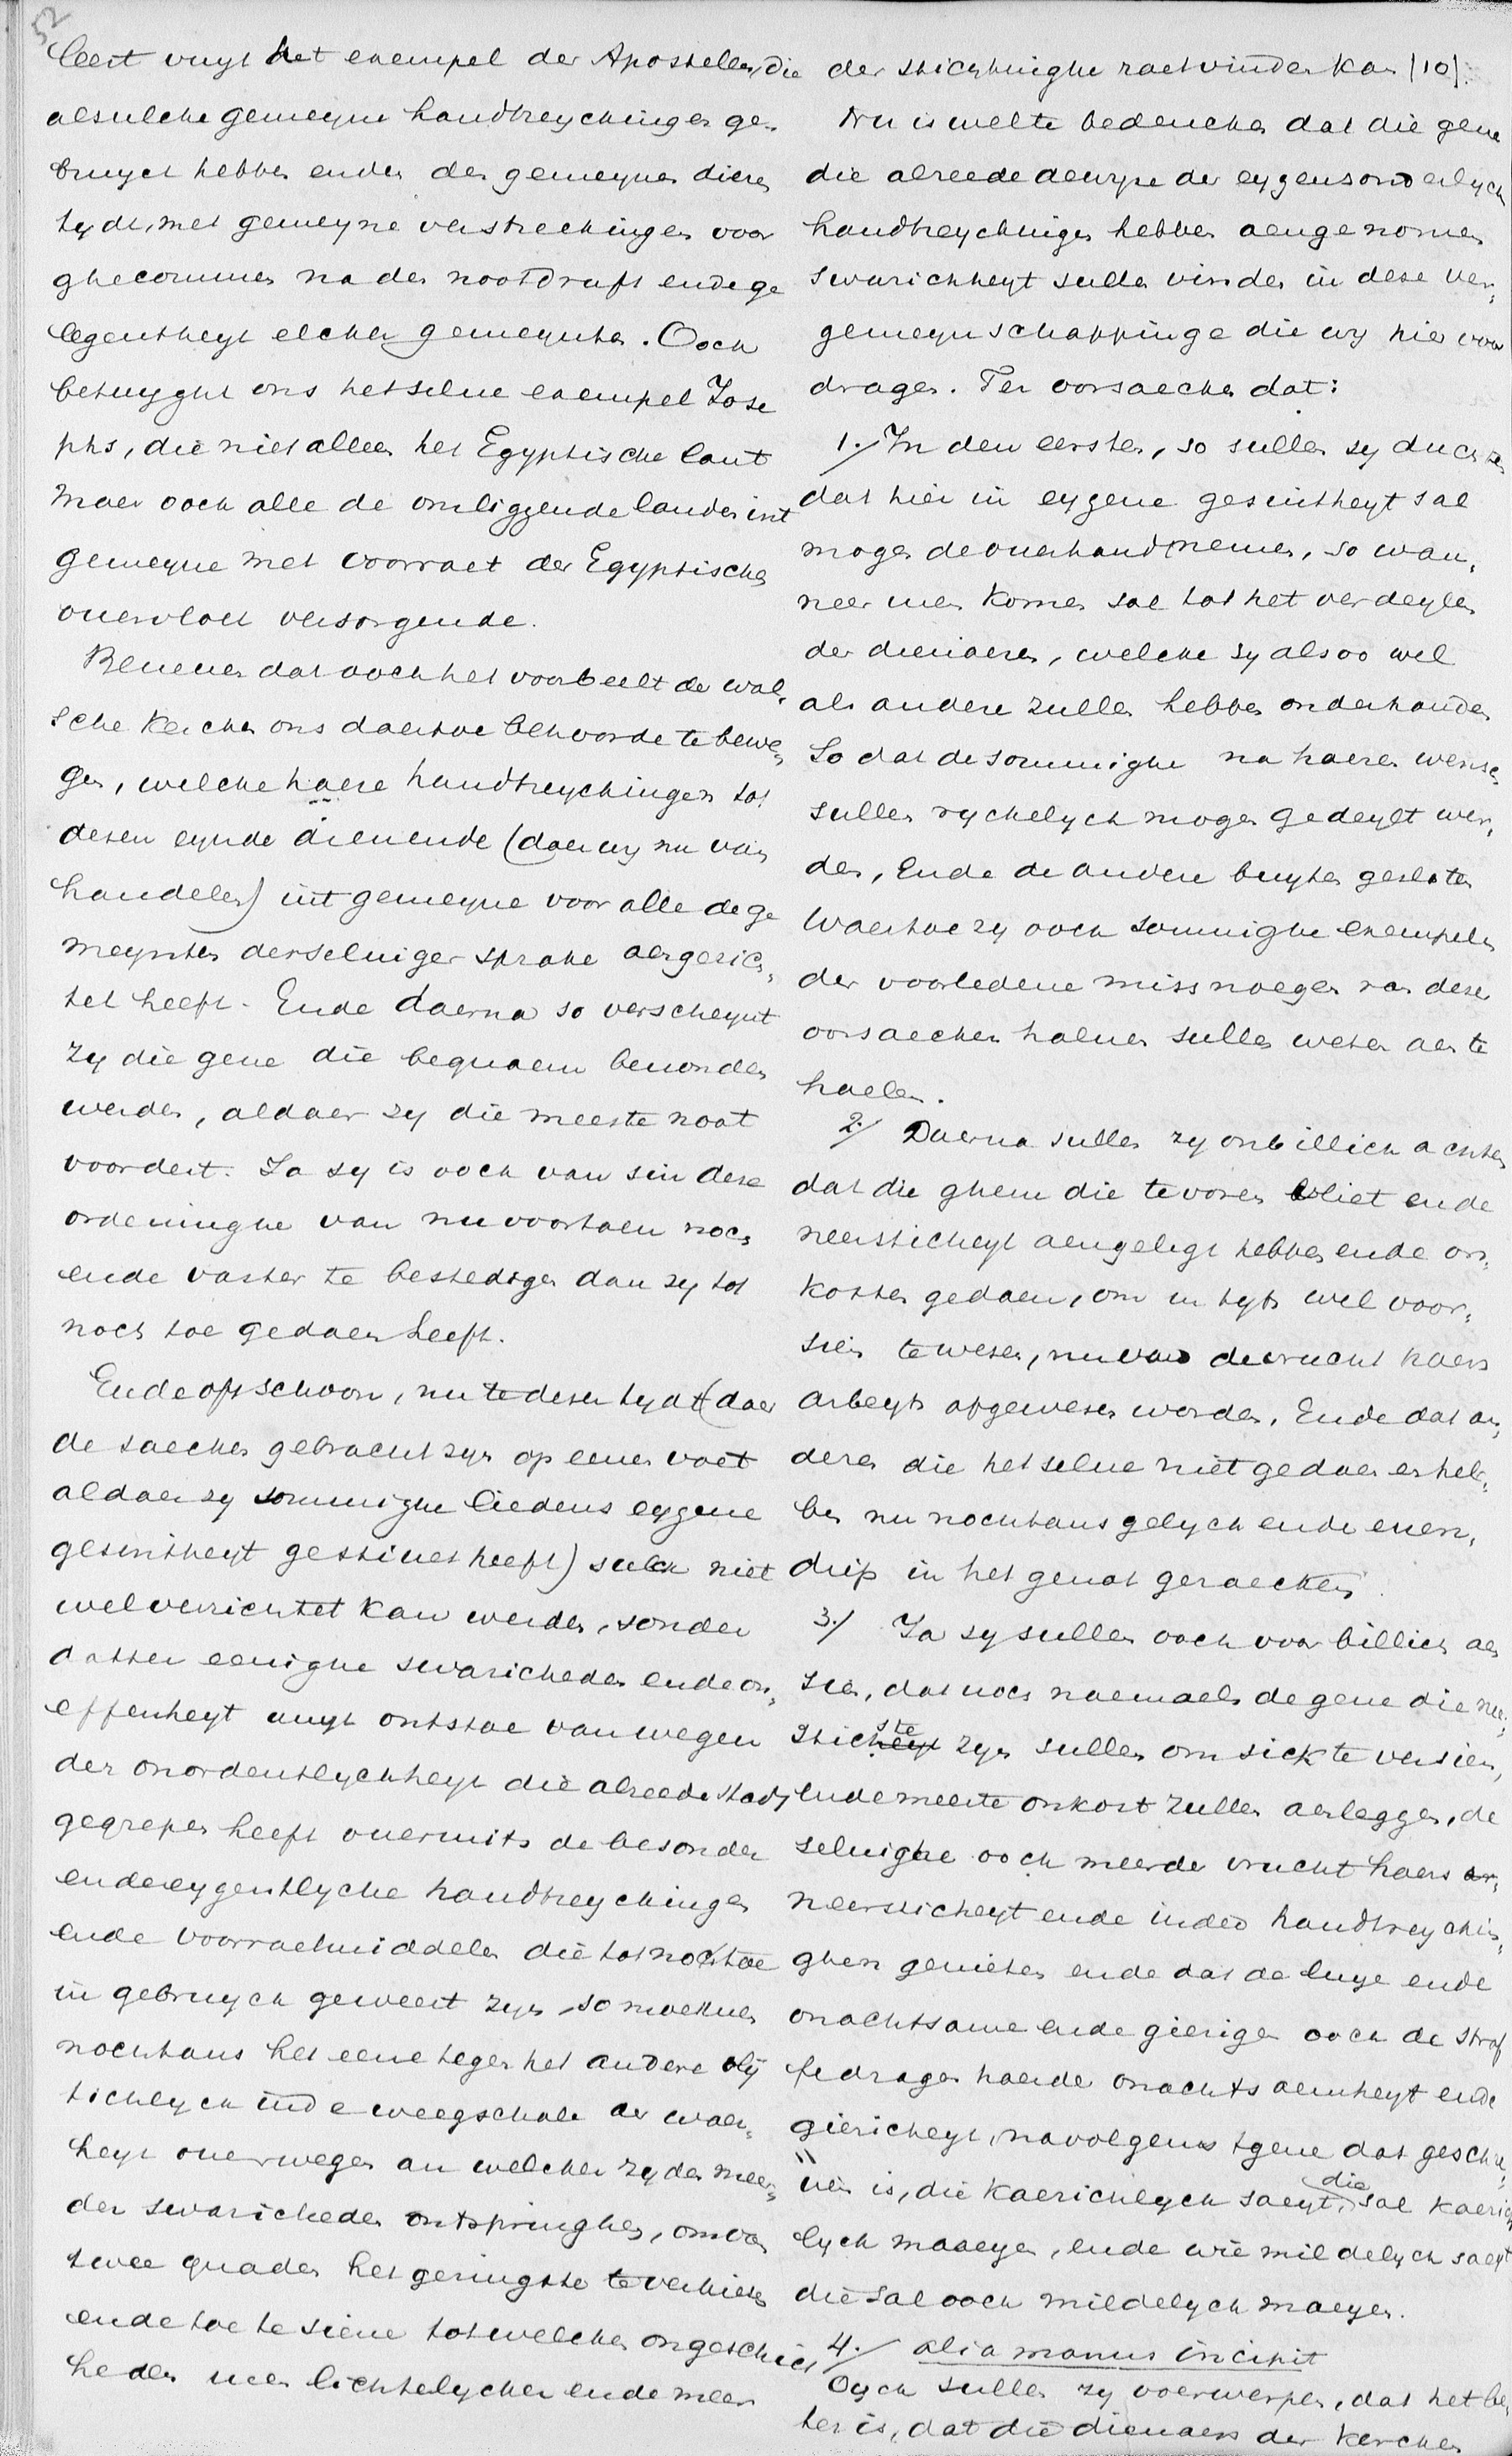 52
leert vuyt het exempel der Apostellen, die
alsulcke gemeyne handtreyckingen ge-
bruyct hebben ende den gemeynen dienen
tydt, met gemeyne verstreckingen voor
ghecommen na den nootdruft ende ge
legentheyt elcker gemeynten. Oock
betuyght ons hetselue exempel Jose
phs, die niet alleen het Egyptische lant
maer oock alle de omliggende landen int
gemeyne met voorraet der Egyptischen
ouervloet versorgende.
Beneuen dat oock het voorbeelt der wal-
sche Kercken ons daertoe behoorde te bewe-
gen, welcke haere handtreyckingen tot
desen eynde dienende (daer wy nu van
handelen) int gemeyne voor alle de ge
meynten derseluiger sprake aengerich-
tet heeft. Ende daerna so verscheynt
zy die gene die bequaem beuonden
werden, aldaer zy die meeste noot
voordert. Ja sy is oock van sin dese
ordeninghe van nu voortaen noch
ende vaster te bestedigen dan zy tot
noch toe gedaen heeft.
Ende oft schoon, nu te desen tydt (daer
de saecken gebracht zyn op eenen voet
aldaer zy sommighe liedens eygene
gesintheyt gestiuet heeft) sulck niet
wel verrichtet kan werden, sonder
datter eenighe swaricheden ende on-
effenheyt vuyt ontstae van wegen
der onordentlyckheyt die alreede stadt
gegrepen heeft ouermits de besonder
ende eygentlycke handtreyckingen
ende voorraetmiddelen die tot noch toe
in gebruyck geweest zyn, so moeten wy
nochtans het eene tegen het andere vly
tichlyck in de weegschale der waer-
heyt ouerwegen an welcker zyden meer-
der swaricheden ontspringhen, om van
twee quaden het geringste te verkiesen
ende toe te siene tot welcken ongeschict
heden men lichtelycker ende meer
der stichtinghe raet vinden kan (10).
Nu is wel te bedencken dat die gene
die alreede aen zyn de eygensonderlycke
handtreyckingen hebben aengenomen
swarichheyt sullen vinden in dese ver-
gemeynschappinge die wy hier voor
dragen. Ter oorsaecken dat:
1./ In den eersten, so sullen sy duchten
dat hier in eygene gesintheyt sal
mogen de ouerhand nemen, so wan-
neer men komen sal tot het verdeylen
der dienaeren, welcke sy alsoo wel
als andere zullen hebben onderhouden
So dat de sommighe na haeren wensch
sullen ryckelyck mogen gedeylt wer-
den, Ende de andere buyten gesloten
Waertoe zy oock sommighe exempelen
der voorledene missnoegen van desen
oorsaecken haluen sullen weten aen te
haelen.
2./ Daerna sullen zy onbillich achten
dat die ghene die te voren vliet ende
neersticheyt aengelegt hebben ende on-
kosten gedaen, om in tyts wel voor-
sien te wesen, nu van de vrucht haers
arbeyts afgewesen worden, Ende dat an-
deren die hetselue niet gedaen en heb-
ben nu nochtans gelyck ende euen-
diep in het genot geraecken
3./ Ja sy sullen oock voor billich aen
sien, dat noch naemaels de gene die neer-
stichste zyn sullen om sick te versien,
ende meeste onkost zullen aenleggen, de
seluighe oock meerde vrucht haers ar-
neersticheyt ende in deo handtreychin-
ghen genieten ende dat de luye ende
onachtsame ende gierigen oock de straf
fe dragen haerder onachtsaemheyt ende
giericheyt, navolgens tgene dat geschre-
uen is, die kaerichlyck saeyt, die sal kaerich
lyck maaeyen, ende wie mildelyck saeyt
die sal oock mildelyck maeyen.
4./ alia manus incipit
Oyck sullen zy voerwerpen, dat het be-
ter is, dat die dienaers der Kercken